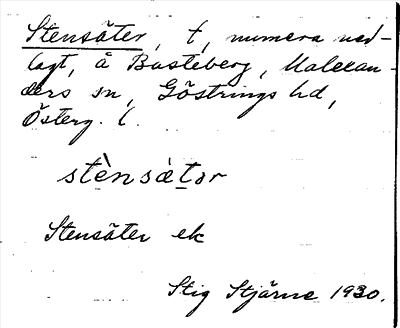 Stensäter, t, numera ned-
lagt, å Basteberg, Malexan-
ders sn, Göstrings hd,
Österg. l.
stènsä̀tər
Stensäter ek
Stig Stjärne 1930.